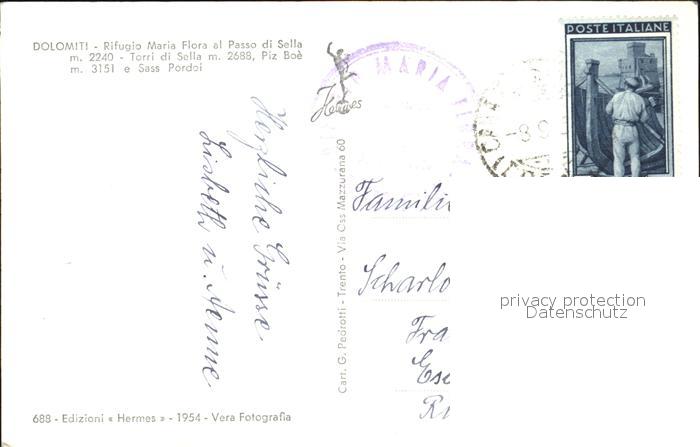 DOLOMITI - Rifugio Maria Flora al Passo di Sella
m. 2240 - Torri di Sella m. 2688, Piz Boè
m. 3151 e Sass Pordoi
Hermes
MARIA FLORA
POSTE ITALIANE
Herzliche Grüsse
Lisbeth u. Aenne
Cart. G. Pedrotti - Trento - Via Oss Mazzurana 60
Famili
Scharlo
Fra
Ese
privacy protection
Datenschutz
688 - Edizioni « Hermes » - 1954 - Vera Fotografia